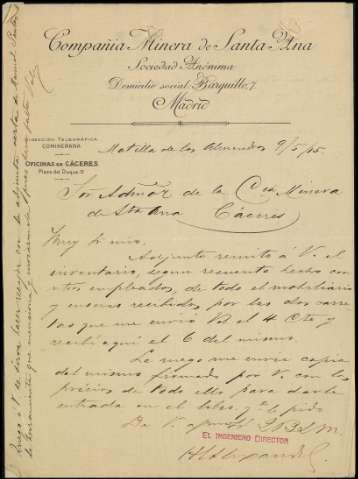 Compañia Minera de Santa Ana
Sociedad Anónima
Domicilio social: Barquillo, 7.
Madrid
DIRECCIÓN TELEGRÁFICA
COMINERANA
OFICINAS EN CÁCERES
Plaza del Duque 11
Matilla de los Almendros 9/5/05
Sor Admor de la Cia Minera
de Sta Ana Cáceres
Muy Sr mio.
Adjunto remito á V. el
inventario, segun recuento hecho con
estos empleados, de todo el mobiliario
y enseres recibidos, por las dos carre
tas que me envió Vd el 4 Cte y
recibi aqui el 6 del mismo.
Le ruego me envie copia
del mismo firmado por V. con los
precios de todo ello para darle
entrada en el libro
De V. S.S. Q B S M.
EL INGENIERO DIRECTOR
Ruego á V. se sirva hacer seguir con la adjunta carta de Manuel
la herramienta que menciona y